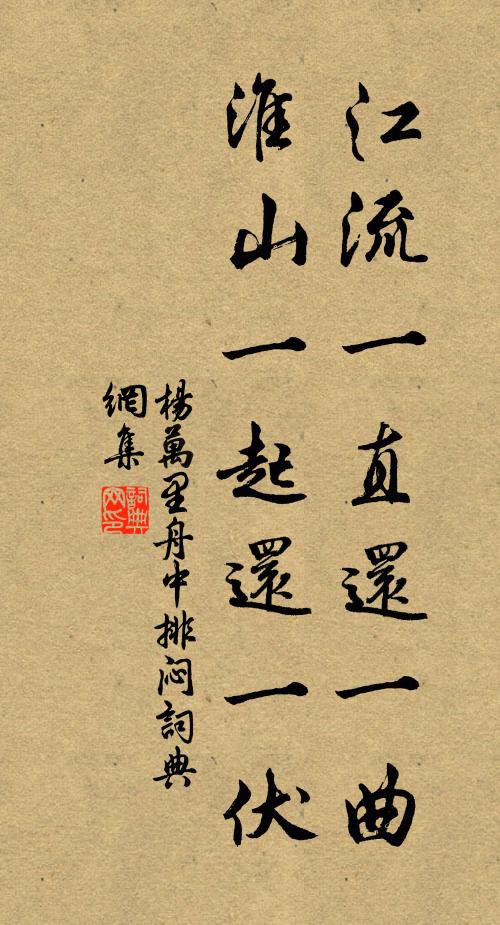 江流一直還一曲
淮山一起還一伏
楊萬里舟中排闷詞典
網集
詞典
网印